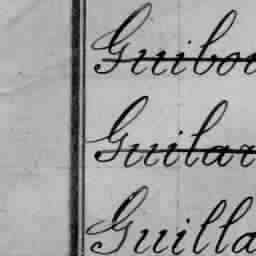 Guibou
Guilar
Guilla